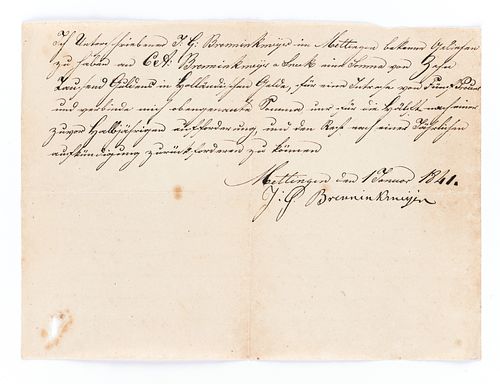 Ich Unterschriebener J. G. Brenninkmeijer in Mettingen bekenne geliehen
zu haben an C & A. Brenninkmeijer a Sneek eine Summe von Zehn
Tausend Guldens in Holländischen Gelde, für eine Intresse von Fünf Procent
und verbinde mich obengenante Summe nur für die Hälfte nach einer
zuvor Halbjährigen aufforderung, und den Rest nach einer Jährlichen
aufkündigung zurück fordern zu können
Mettingen den 1 Januar 1841.
J. G. Brenninkmeijer